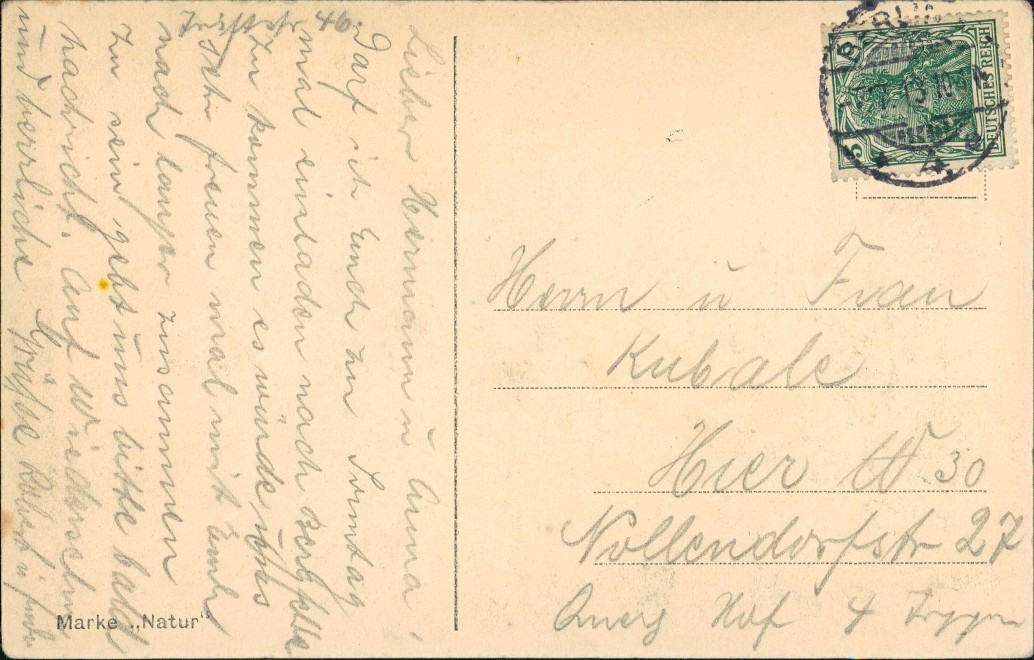 Lieber Hermann u Anna!
Darf ich Euch zu Sonntag
mal einladen nach
zu kommen es würde uns
sehr freuen mal mit Euch
nach langer zusammen
zu sein gebt uns bitte bald
nachricht. Auf Wiedersehn
und herrliche Grüsse
46.
Herrn u Frau
Kubale
Hier W 30
Nollendorfstr 27
Querg Hof 4 Treppen
Marke „Natur“
DEUTSCHES REICH
5
5
4